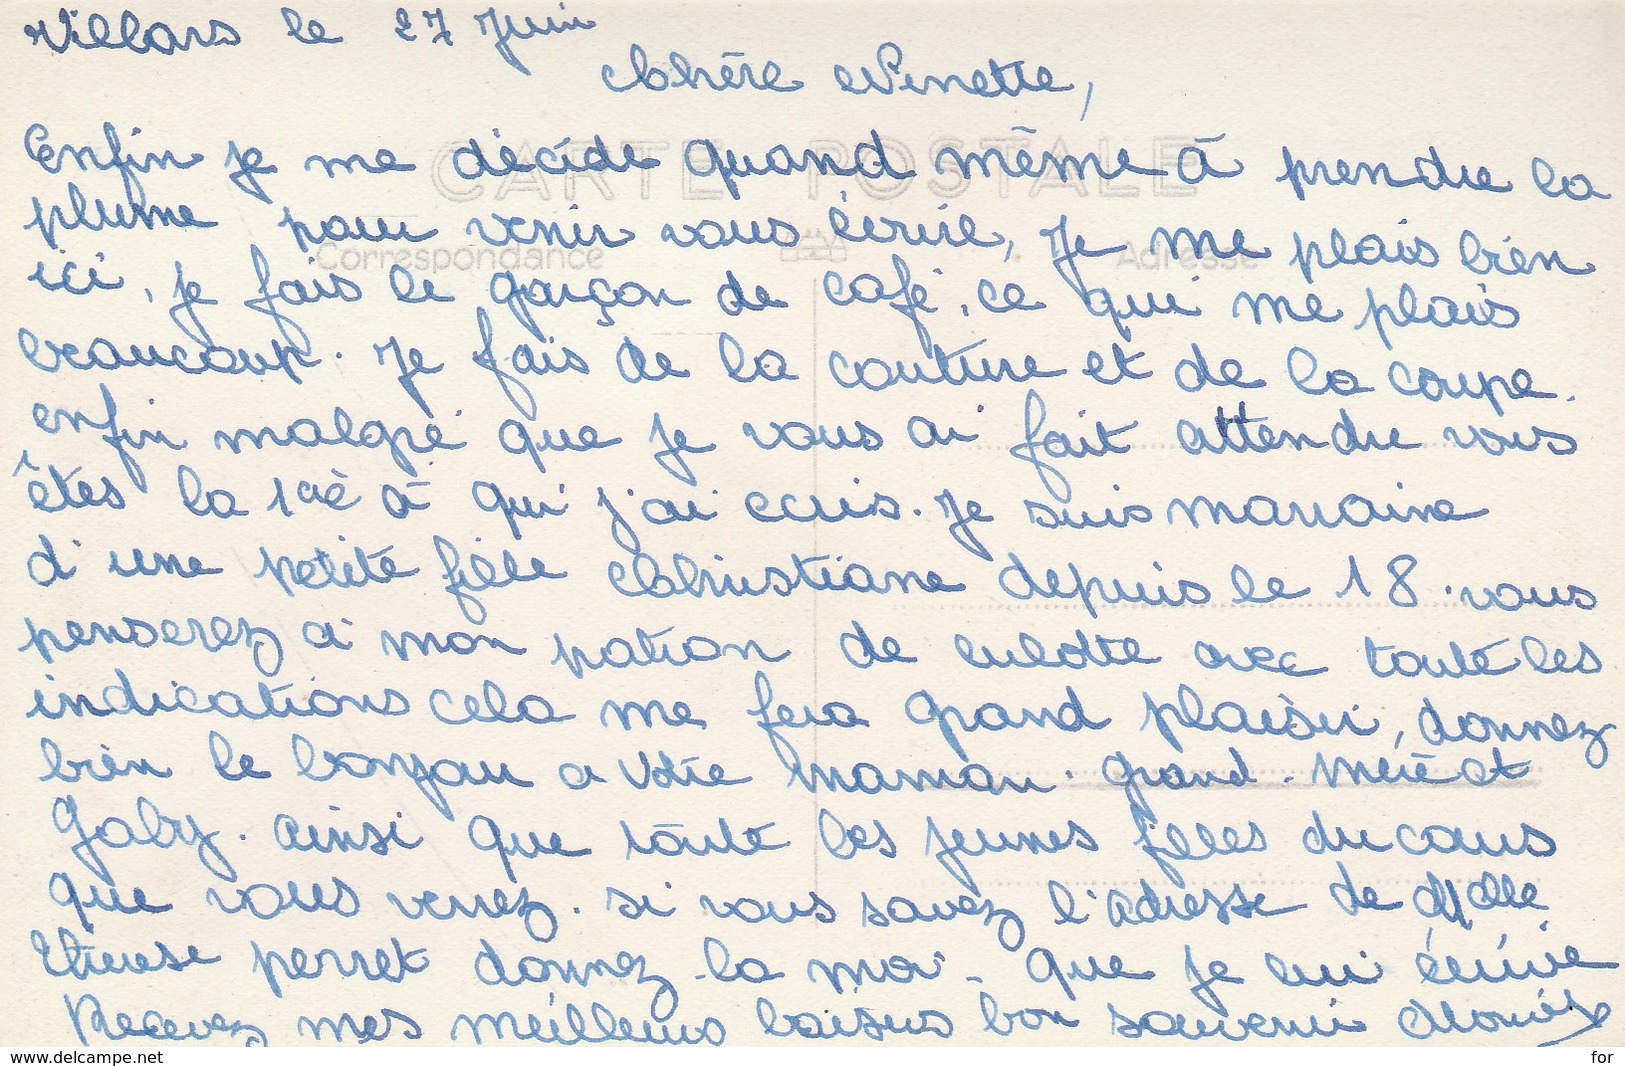 Villars le 27 Juin
Chère Ninette,
Enfin je me décide quand même à prendre la
plume pour venir vous écrire, Je me plais bien
ici, je fais le garçon de café, ce qui me plais
beaucoup. Je fais de la couture et de la coupe.
enfin malgré que je vous ai fait attendre vous
êtes la 1ère à qui j'ai écris. Je suis marraine
d'une petite fille Christiane depuis le 18. vous
penserez à mon patron de culotte avec toute les
indications cela me fera grand plaisir, donnez
bien le bonjour a votre maman. grand-mère et
Gaby. ainsi que toute les jeunes filles du cours
que vous verrez. si vous savez l'adresse de Melle
perret donnez-la moi - que je lui écrive
Recevez mes meilleurs baisers bon souvenir
CARTE POSTALE
Correspondance
Adresse
www.delcampe.net
for